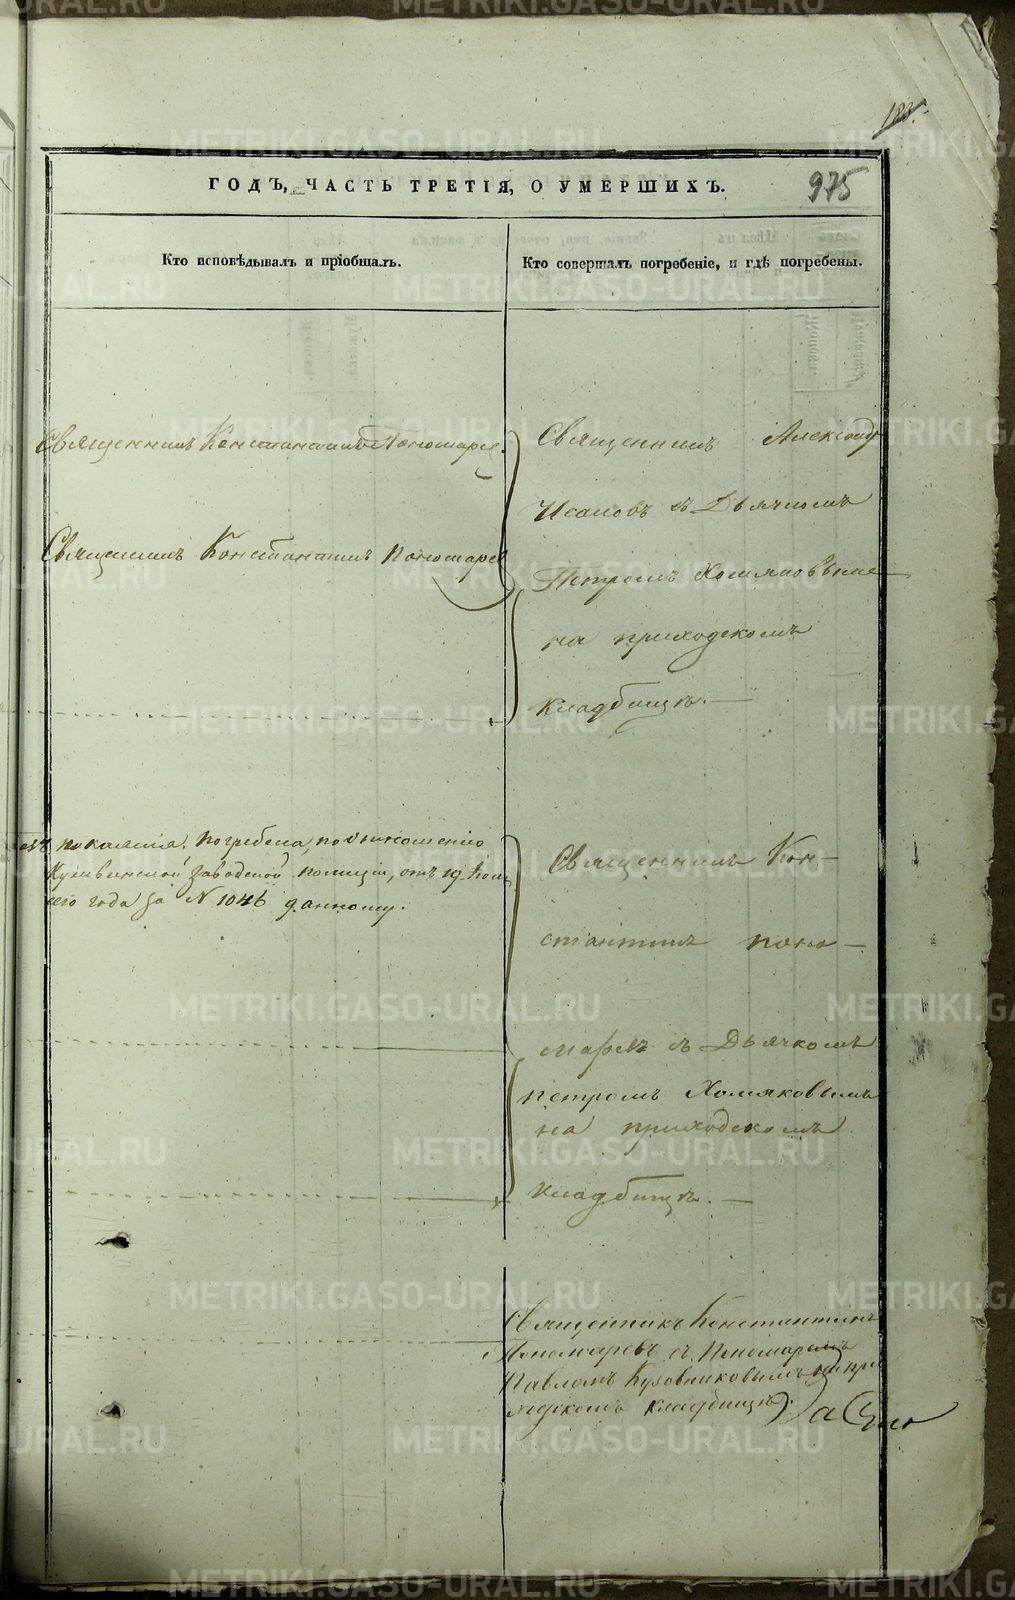 183.
ГОДЪ, ЧАСТЬ ТРЕТІЯ, О УМЕРШИХЪ.
975
Кто исповѣдывалъ и пріобщалъ.
Кто совершалъ погребеніе, и гдѣ погребены.
Священникъ Константинъ Пономаревъ.
Священникъ Константинъ Пономарев
Священникъ Александр
Исаковъ съ Дьячкомъ
Петромъ Хомяковымъ
на приходскомъ
кладбищѣ.
покаянія. Погребена, по отношенію
Кушвинской заводской полиціи, отъ 19
сего года за N 1046 данному.
Священникъ Кон-
стантинъ Поно-
маревъ съ Дьячкомъ
Петромъ Хомяковымъ
на приходскомъ
кладбищѣ.
Священникъ Константинъ
Пономаревъ съ Пономаремъ
Павломъ Кузовниковымъ на при
ходскомъ кладбищѣ.
METRIKI.GASO-URAL.RU